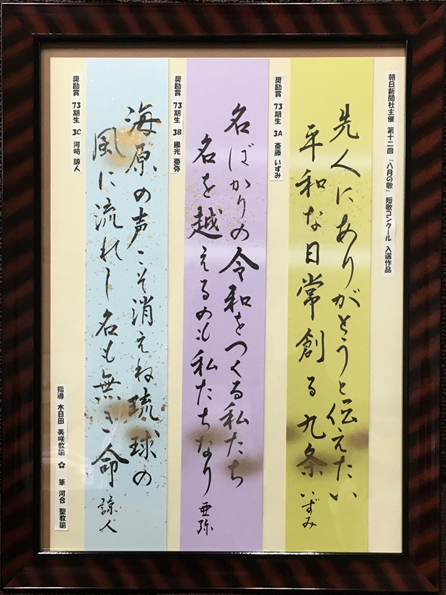 朝日新聞社主催 第十二回 「八月の歌」 短歌コンクール 入選作品
先人にありがとうと伝えたい
平和な日常創る九条 いずみ
奨励賞 73期生 3A 斎藤 いずみ
名ばかりの令和をつくる私たち
名を越えるのも私たちなり 亜弥
奨励賞 73期生 3B 國光 亜弥
海原の声こそ消えね琉球の
風に流れし名も無き命 諒人
奨励賞 73期生 3C 河崎 諒人
指導 木日田 美咲教諭 ✿ 筆 河合 聖教諭